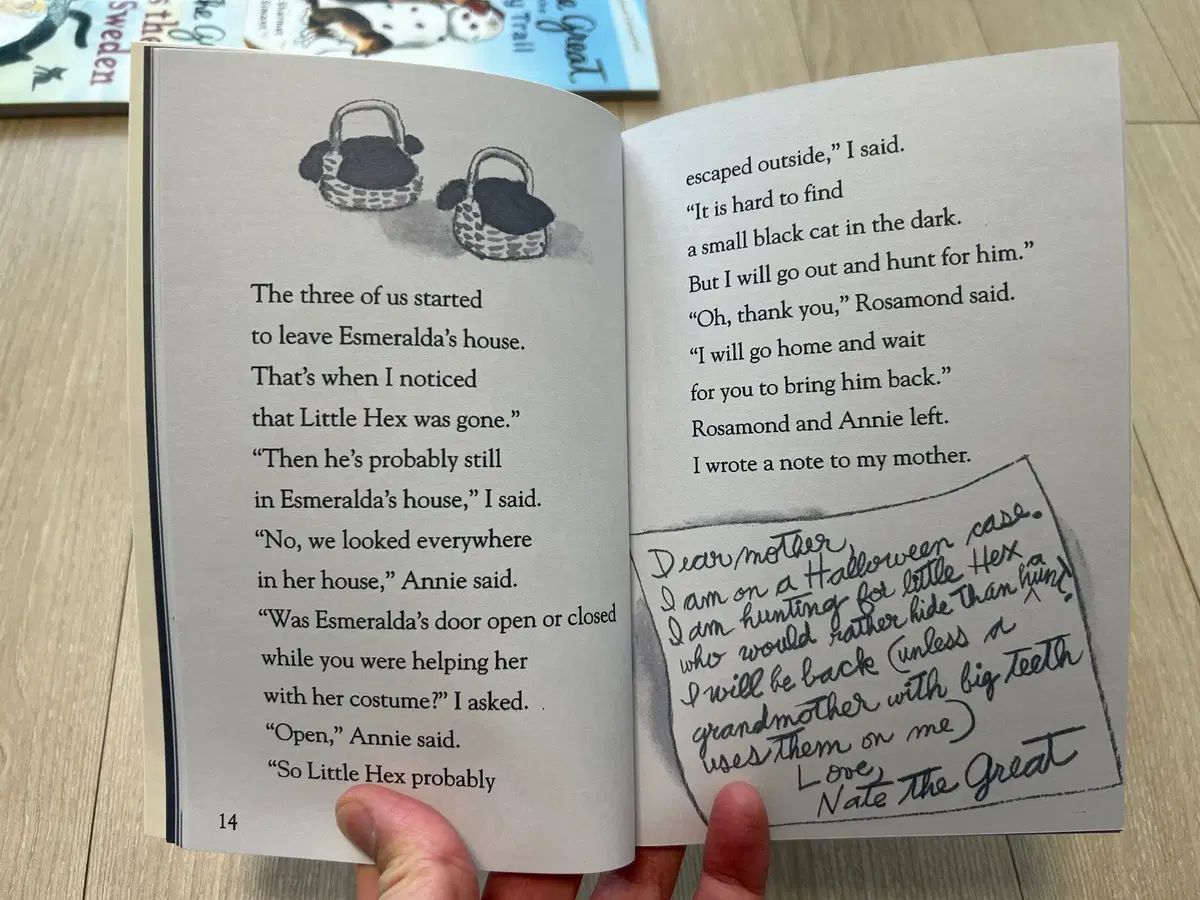 Sweden
Great
Trail
The three of us started
to leave Esmeralda's house.
That's when I noticed
that Little Hex was gone."
"Then he's probably still
in Esmeralda's house," I said.
"No, we looked everywhere
in her house," Annie said.
"Was Esmeralda's door open or closed
while you were helping her
with her costume?" I asked.
"Open," Annie said.
"So Little Hex probably
14
escaped outside," I said.
"It is hard to find
a small black cat in the dark.
But I will go out and hunt for him."
"Oh, thank you," Rosamond said.
"I will go home and wait
for you to bring him back."
Rosamond and Annie left.
I wrote a note to my mother.
Dear mother,
I am on a Halloween case.
I am hunting for little Hex
who would rather hide than hunt.
I will be back (unless a
grandmother with big teeth
uses them on me)
Love,
Nate the Great